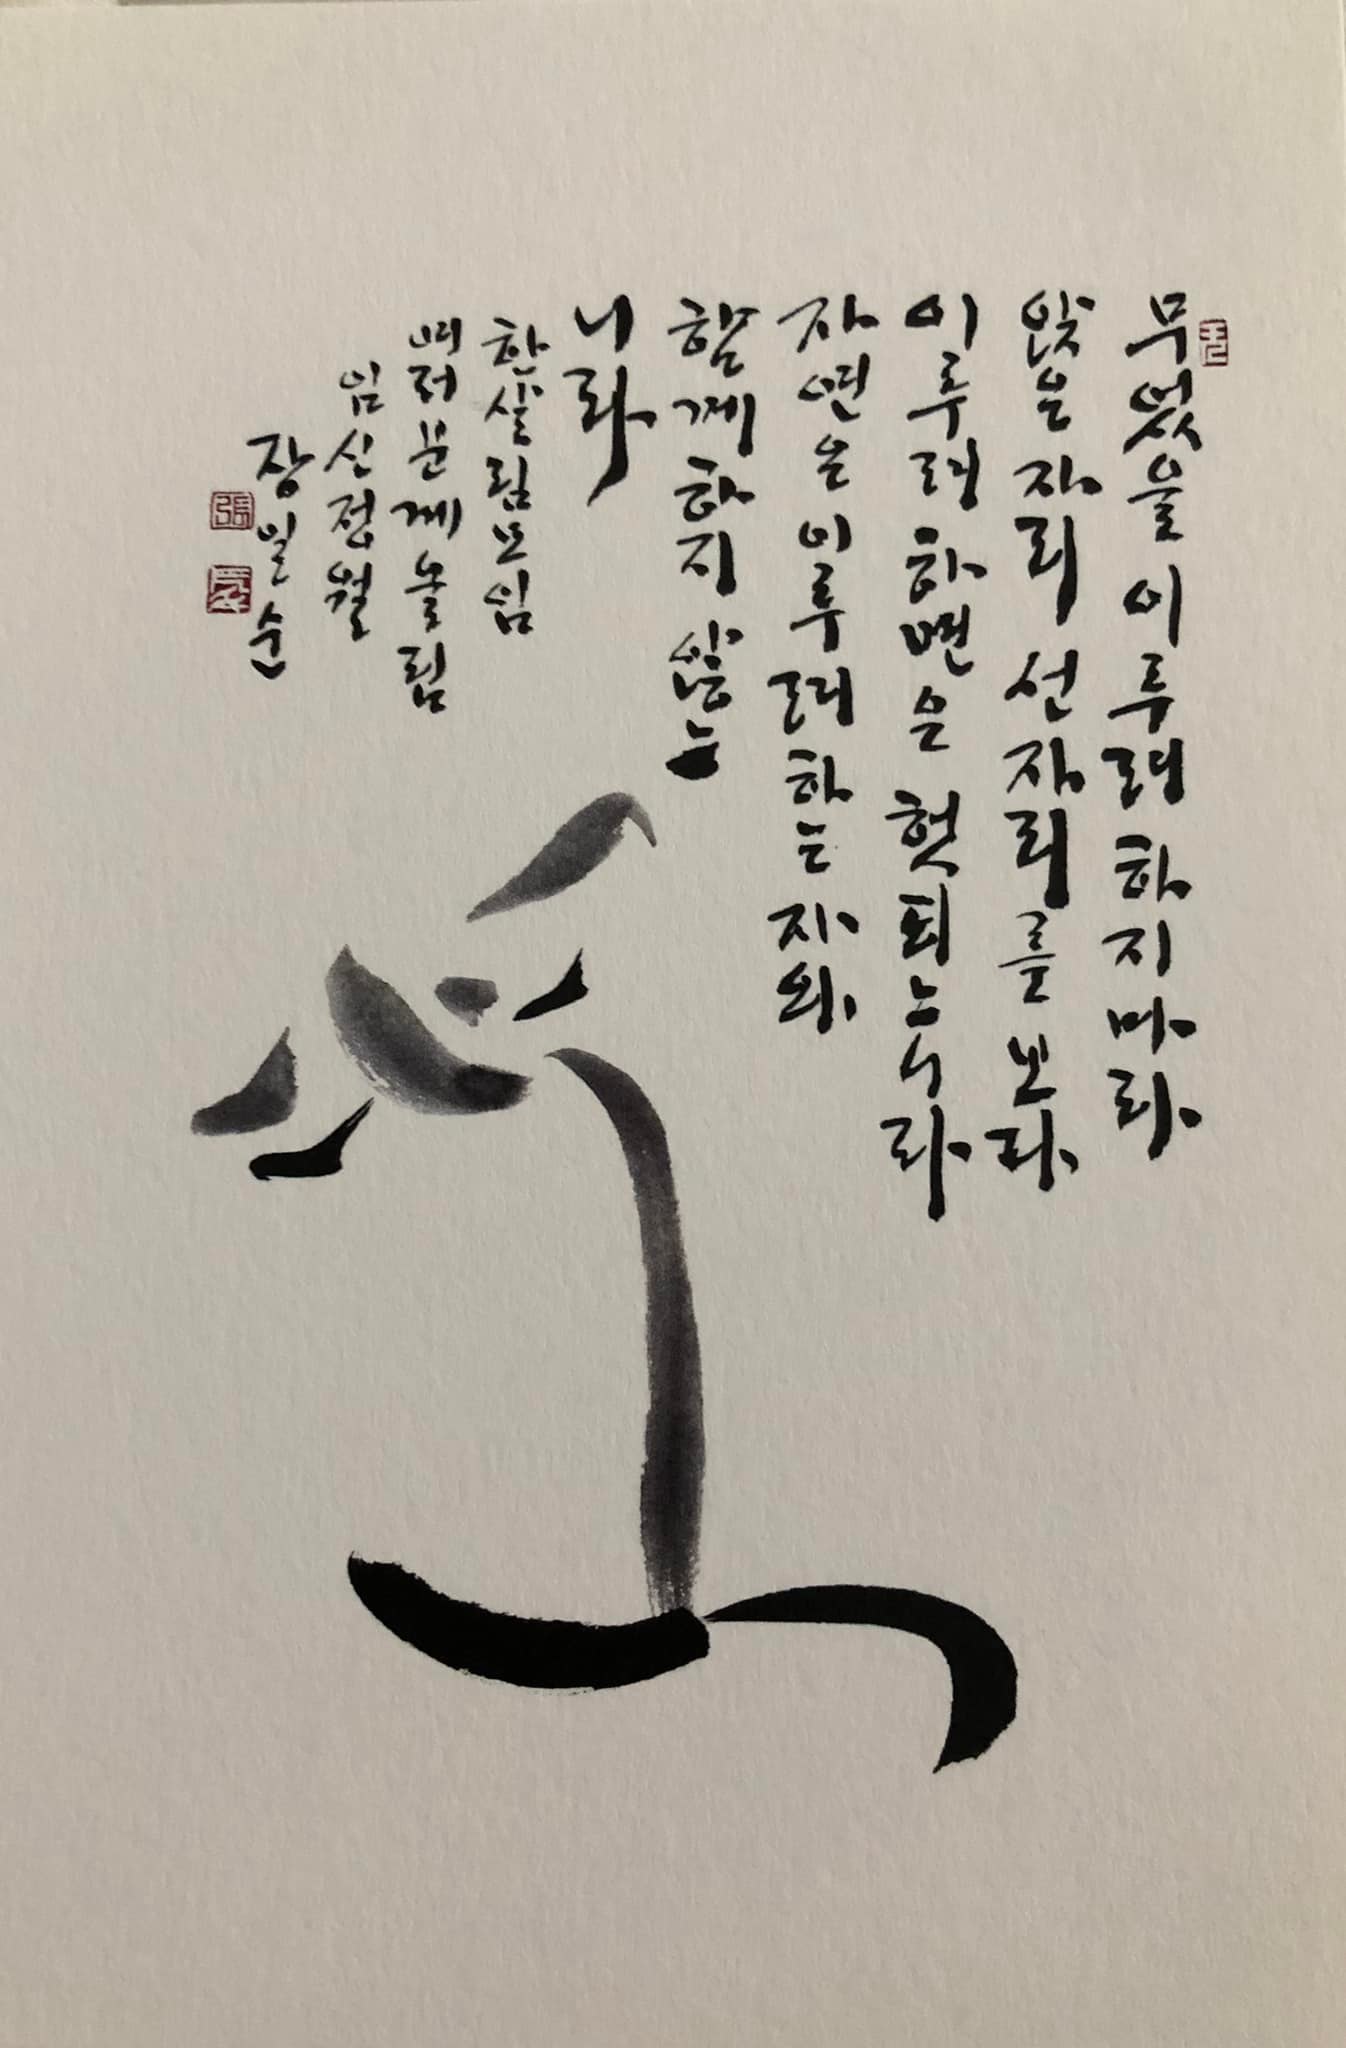 무엇을 이루려 하지 마라
앉은 자리 선 자리를 보라
이루려 하면은 헛되느니라
자연은 이루려 하는 자와
함께하지 않느
니라
한살림 모임
여러분께 올림
임신 정월
장일순
張